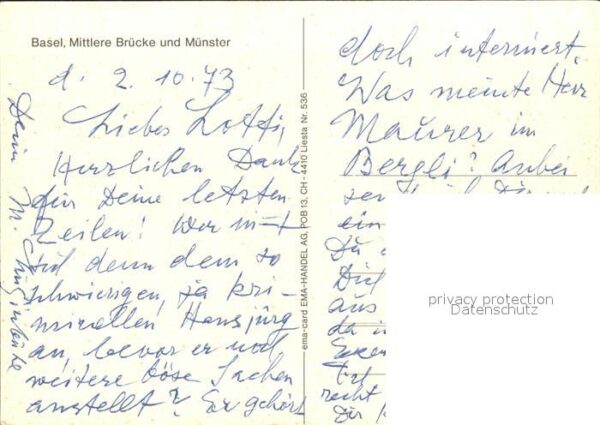 Basel, Mittlere Brücke und Münster
d. 2. 10. 73
Liebes Lotti,
Herzlichen Dank
für Deine letzten
Zeilen! Wer nimmt
sich denn dem so
schwierigen, ja kri-
minellen Hansjürg
an, bevor er noch
weitere böse Sachen
anstellt? Er gehört
Dein
ema-card EMA-HANDEL AG, POB 13, CH - 4410 Liestal Nr. 536
doch interniert.
Was meinte Herr
Maurer im
Bergli? Anbei
ein
Du
Dich
aus
da
recht
Dir
privacy protection
Datenschutz